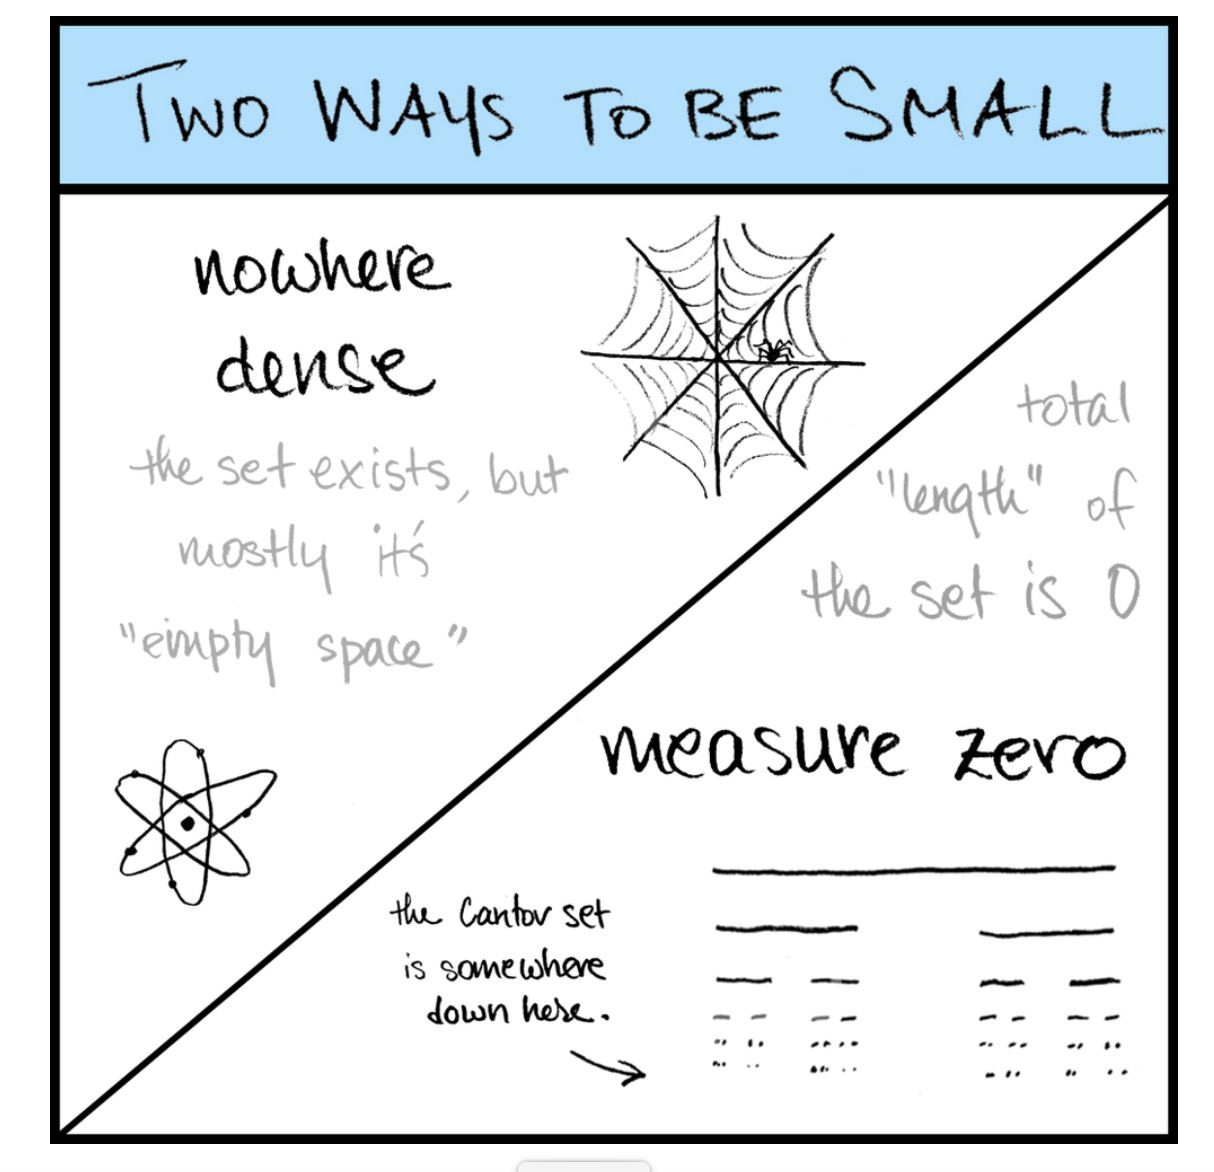 TWO WAYS TO BE SMALL
nowhere
dense
the set exists, but
mostly it's
"empty space"
total
"length" of
the set is 0
measure zero
the Cantor set
is somewhere
down here.